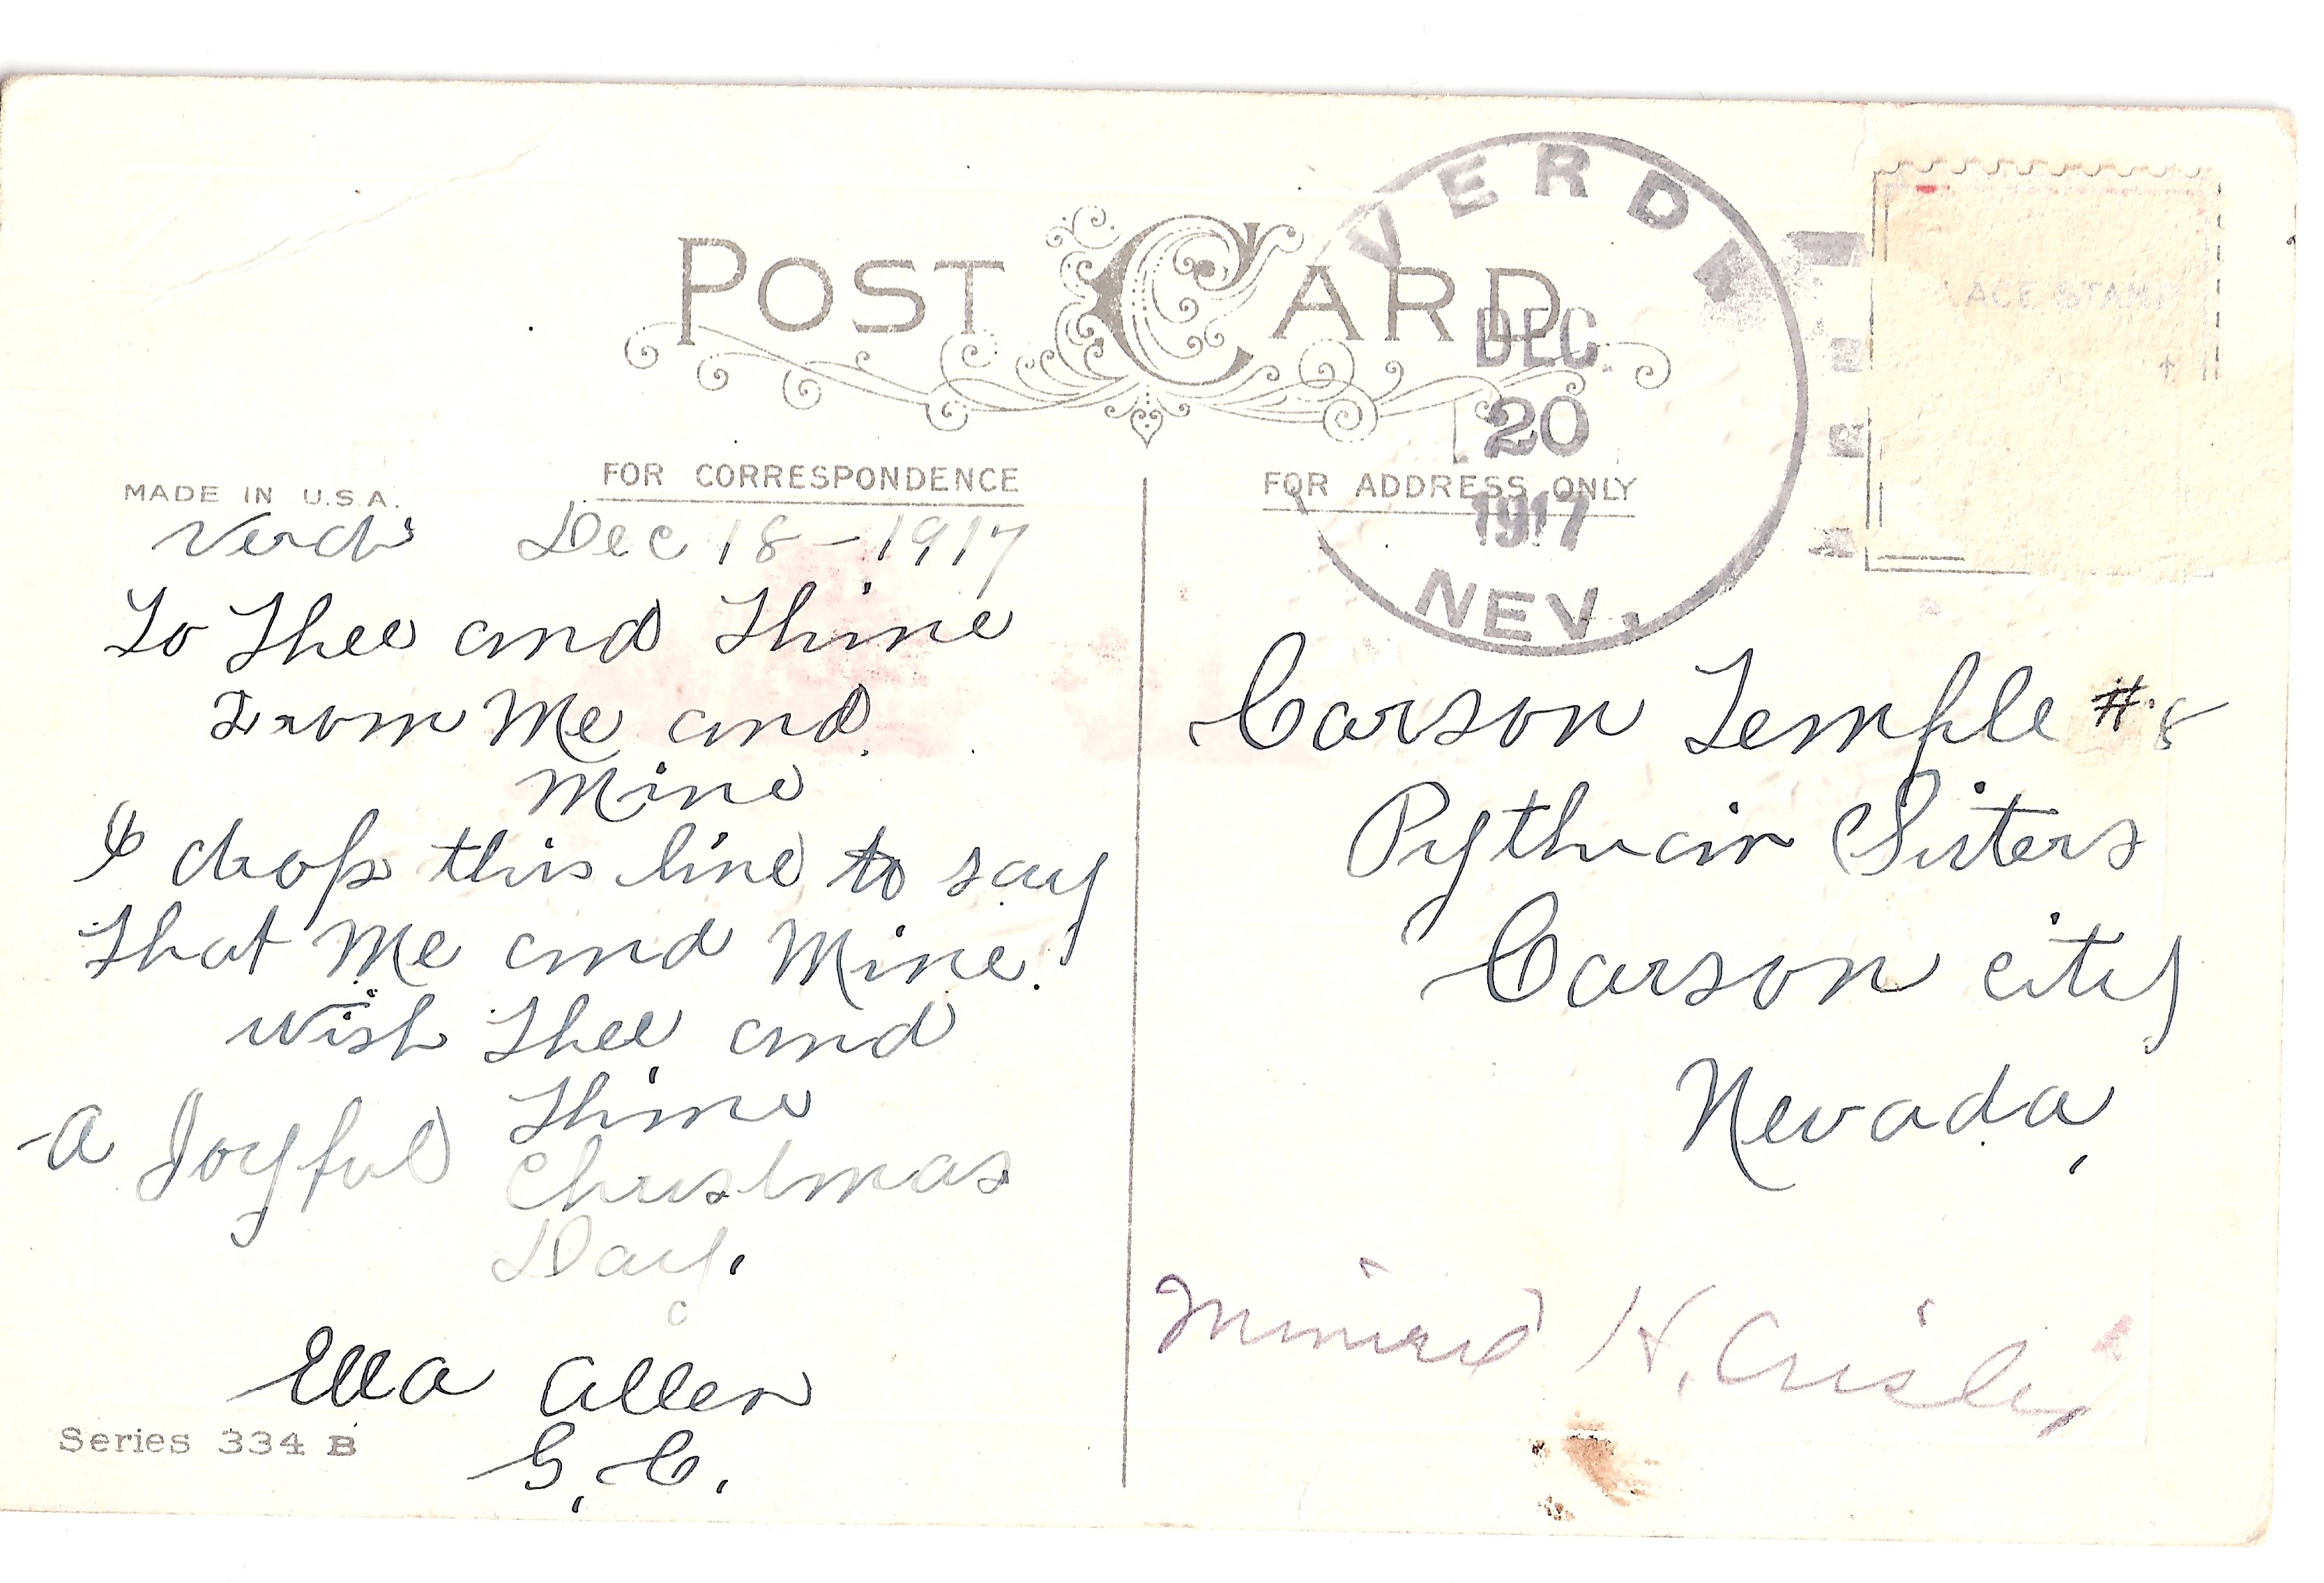 POST CARD
VERDI
DEC
20
1917
NEV.
ACE STAMP
MADE IN U.S.A.
FOR CORRESPONDENCE
FOR ADDRESS ONLY
Verdi Dec 18-1917
To Thee and Thine
From Me and
Mine
I drop this line to say
That Me and Mine.
Wish Thee and
Thine
a Joyful Christmas
Day.
Ella Allen
G.C.
Series 334 B
Carson Temple #8
Pythian Sisters
Carson City
Nevada,
H. Crisler